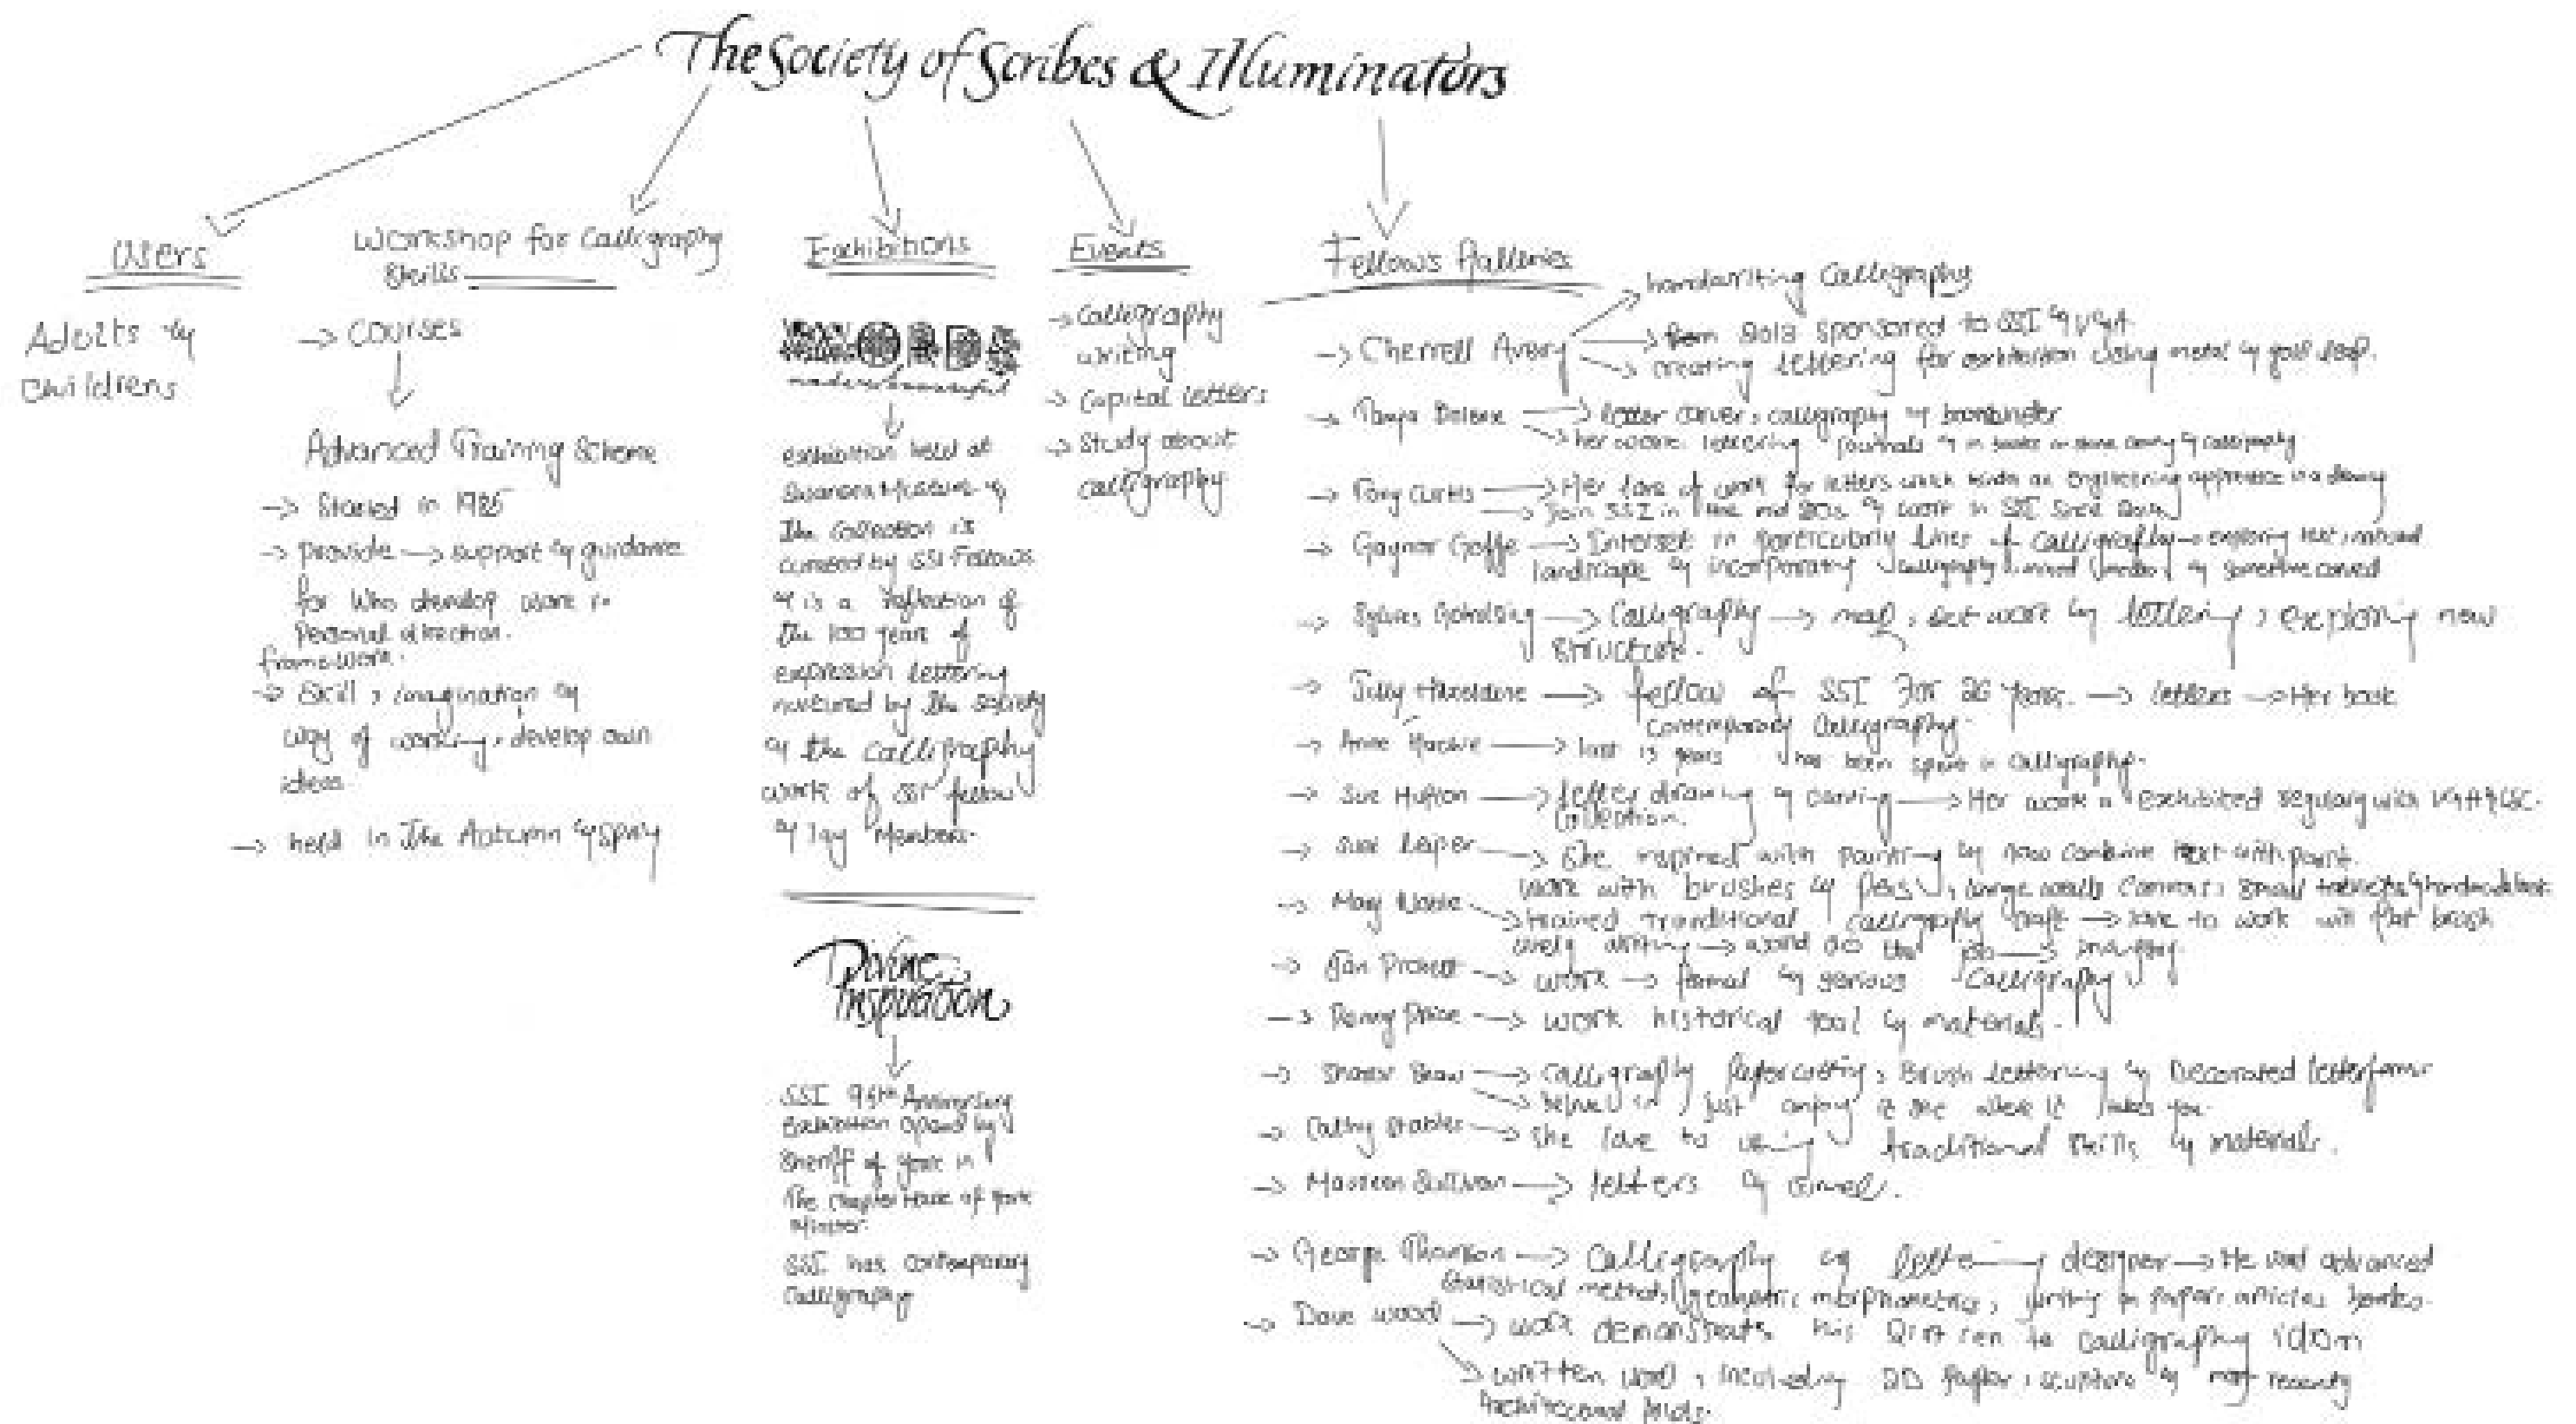 The Society of Scribes & Illuminators
Users
Adults &
Childrens
Workshop for Calligraphy
Skills
→ Courses
Advanced Training Scheme
→ Started in 1985
→ provide → support & guidance
for who develop work in
Personal direction.
framework.
→ Skill, imagination &
way of working, develop own
ideas.
→ held in The Autumn & Spring
Exhibitions
WORDS
exhibition held at
Museum &
The collection is
curated by SSI Fellows
& is a reflection of
the 100 years of
expression lettering
nurtured by the Society
& the calligraphy
work of SSI fellow
& lay Members.
Divine
Inspiration
SSI 95th Anniversary
Exhibition opened by
Sheriff of York in
The Chapter House of York
Minster.
SSI has contemporary
Calligraphy
Events
→ Calligraphy
writing
→ Capital Letters
→ Study about
calligraphy
Fellows Galleries
→ Cherrell Avery
handwriting Calligraphy
→ from 2013 sponsored to SSI &
→ creating lettering for exhibition using metal & gold leaf.
→ letter carver, calligraphy & bookbinder
→ her work lettering journals & in books
→ Tony Curtis → Her love of work for letters an engineering apprentice in a
→ join SSI in the mid 80s & work in SSI since
→ Gaynor Goffe → Interest in particularly lines of calligraphy → exploring text,
landscape & incorporating calligraphy & sometime carved
→ Calligraphy → map, text work & lettering, exploring new
structure.
→ Jilly Hazeldine → fellow of SSI for 20 years. → letters → Her book
Contemporary Calligraphy.
→ last 13 years has been spent in Calligraphy.
→ Sue Hufton → letter drawing & carving → Her work is exhibited regularly with
collection.
→ She inspired with painting & now combine text with paint.
work with brushes & pens, large canvas, small & handmade book
→ Mary Noble → trained traditional calligraphy craft → love to work with flat brush
→ Jan Pickett → work → formal & calligraphy
→ Penny Price → work historical tool & materials.
→ Sharon Shaw → Calligraphy papercutting, Brush Lettering & Decorated letterforms
→ just enjoy it where it takes you.
→ Cathy Stables → She love to using traditional skills & materials.
→ Maureen Sullivan → letters &
→ George Thomson → Calligraphy & lettering designer → He advanced
Statistical methods (geometric morphometrics, writing on paper, articles, books.
→ Dave Wood → work demonstrates his to calligraphy idiom
→ written word, including paper, sculpture & most recently